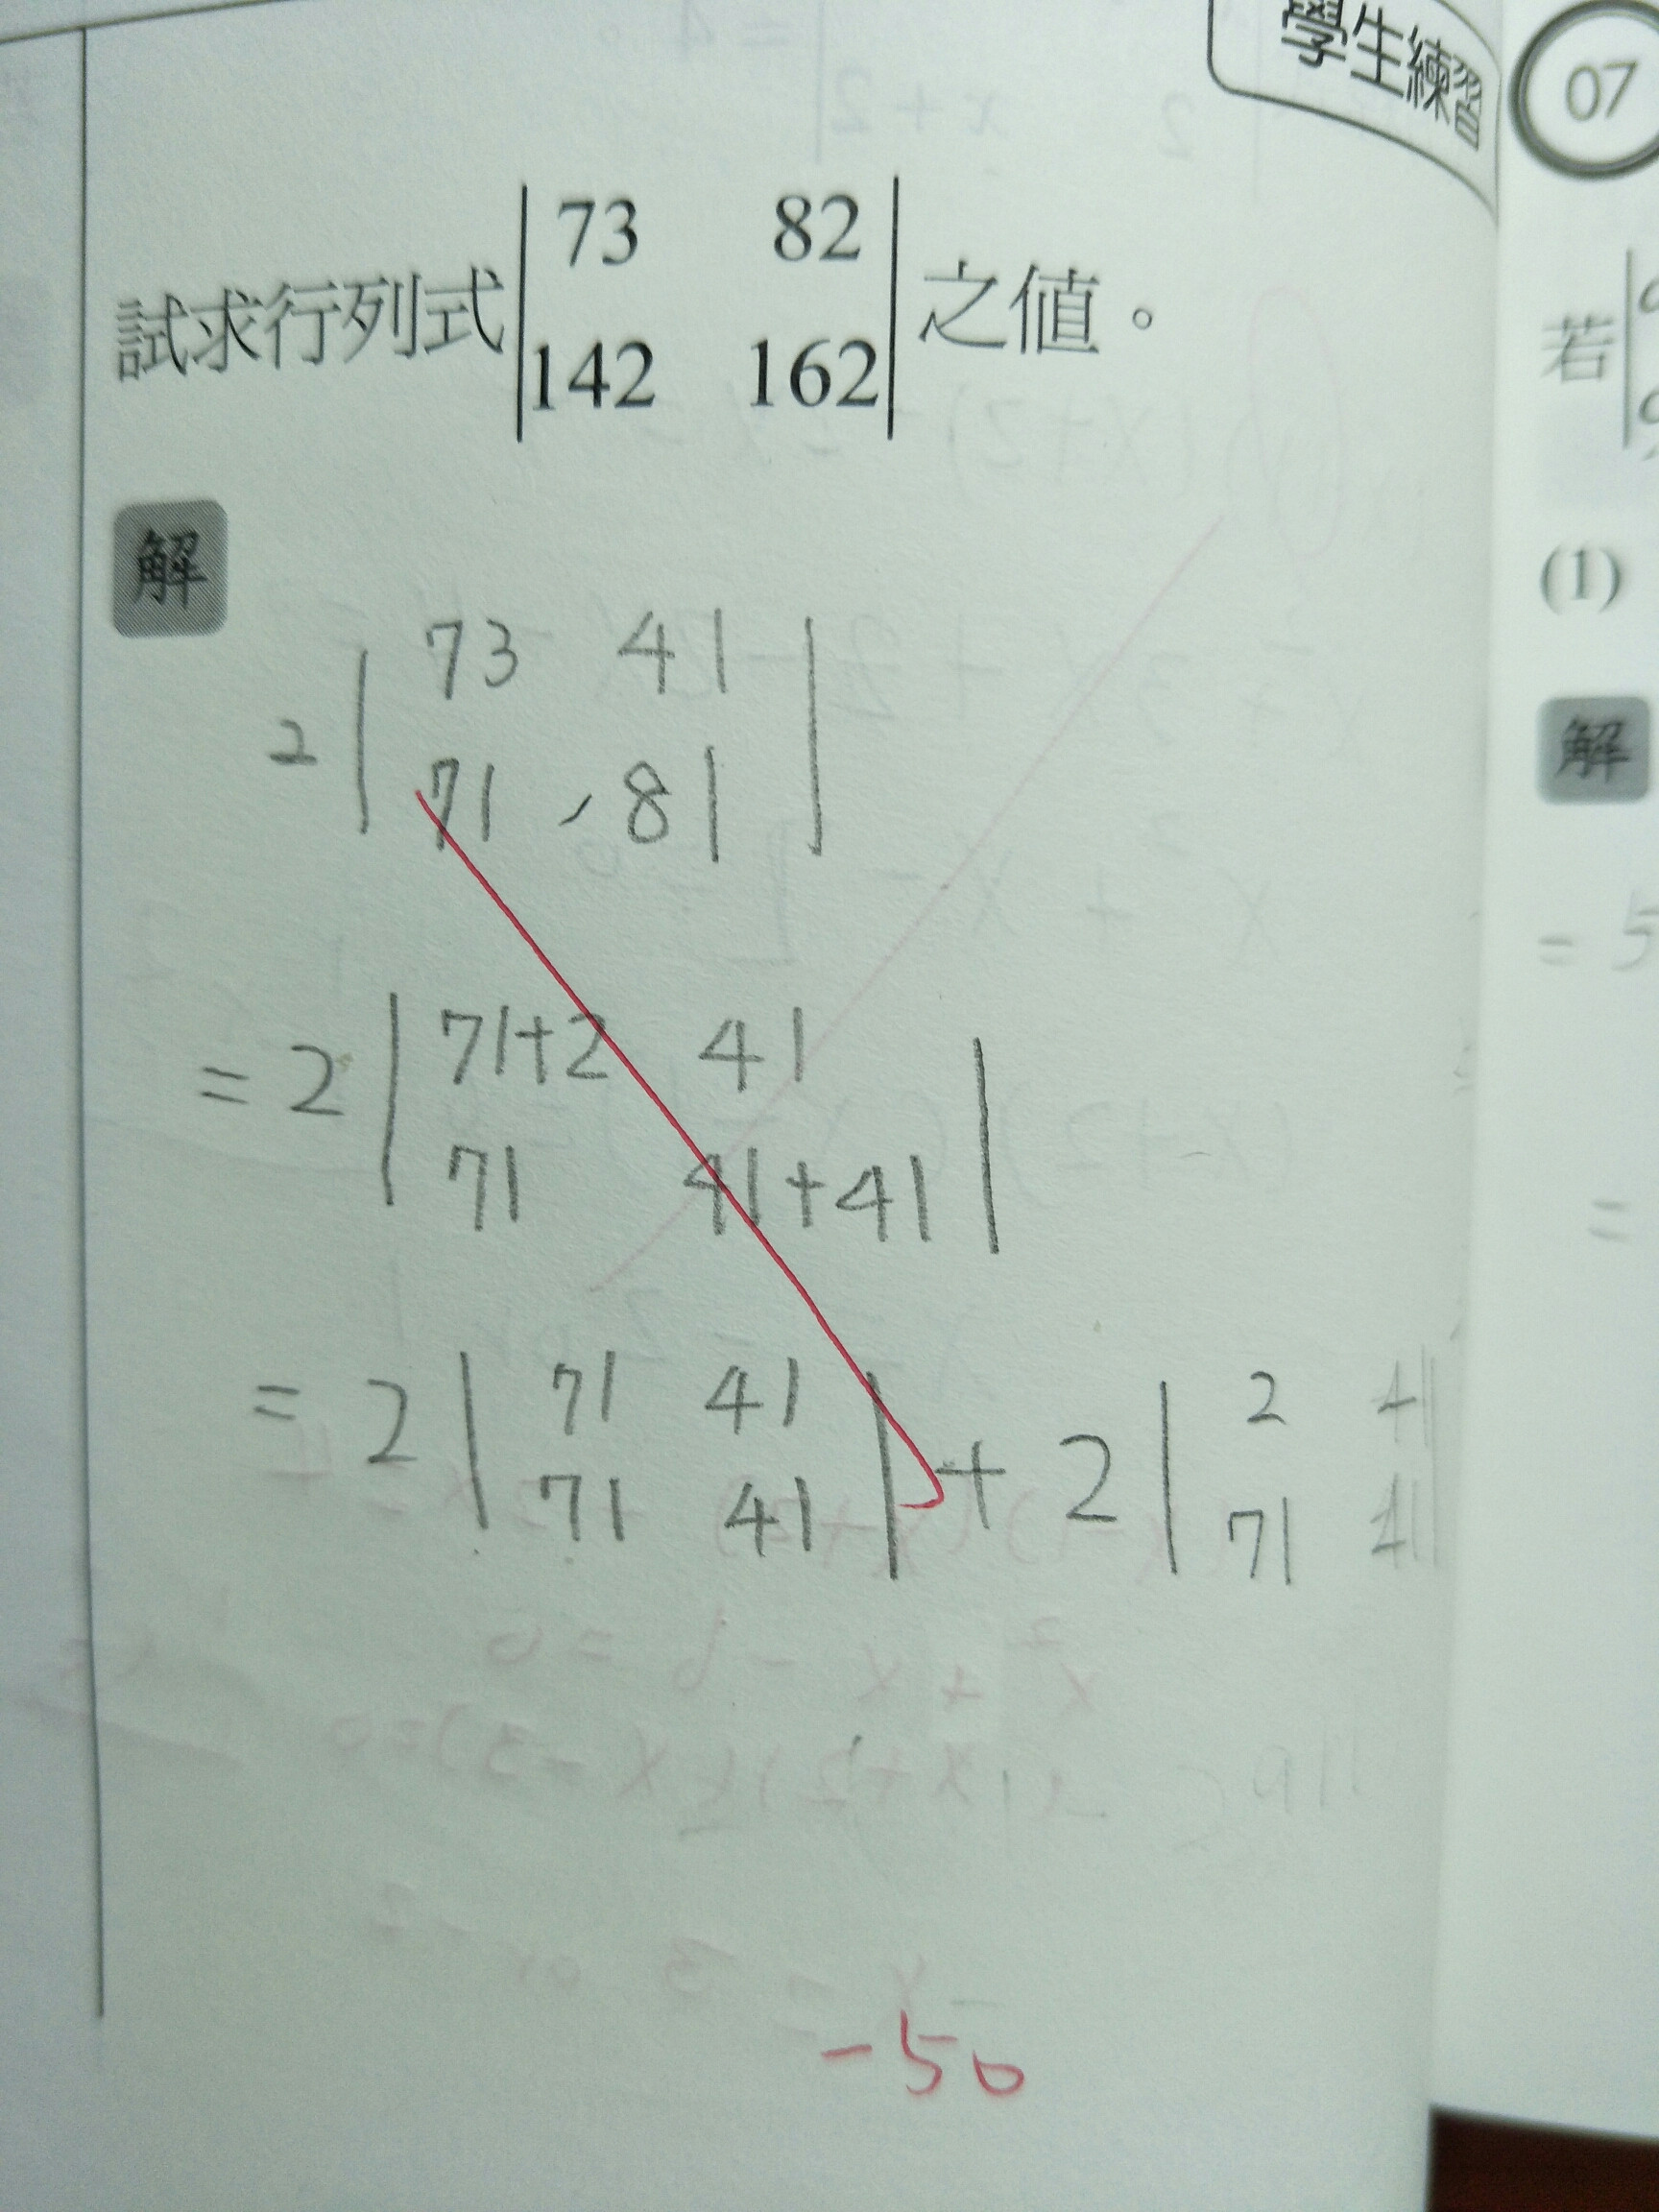 學生練習 07
試求行列式 | 73 82 | 之值。
| 142 162 |
若
(1)
解
解
2 | 73 41 |
| 71 81 |
= 2 | 71+2 41 |
| 71 41+41 |
= 2 | 71 41 | + 2 | 2 41 |
| 71 41 | | 71 41 |
= 5
=
-50